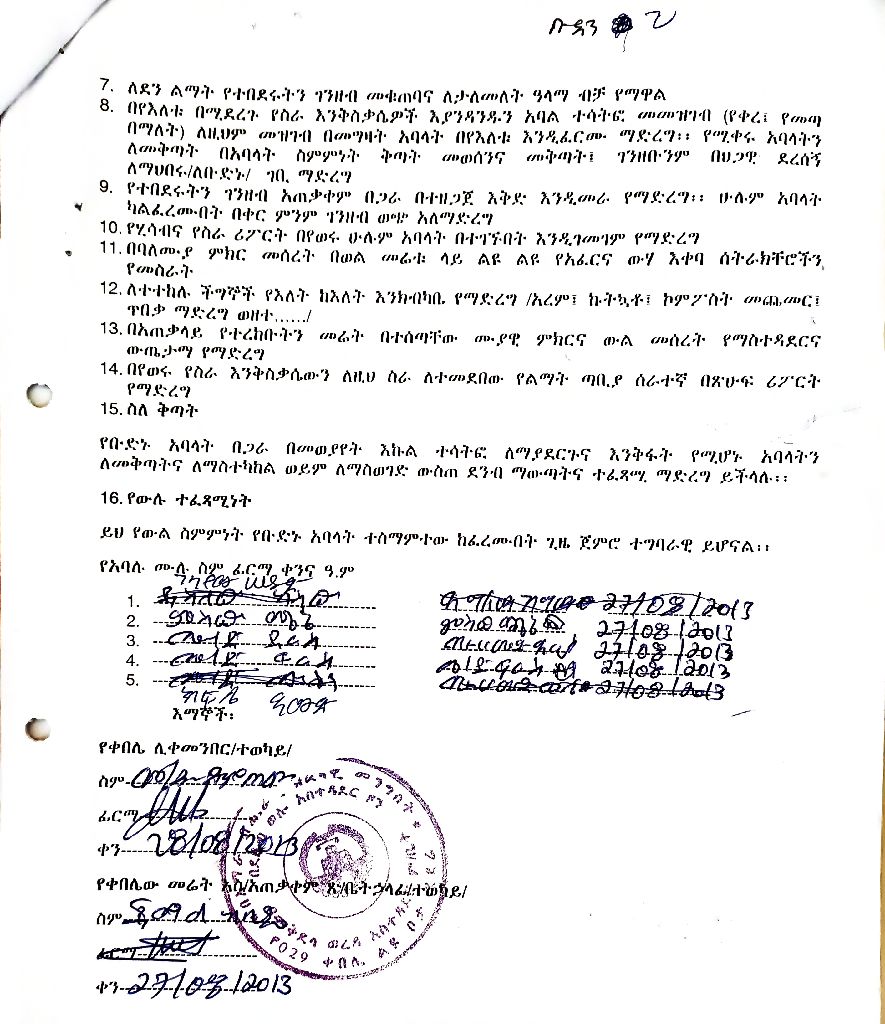 ቡዳን
7. ለደን ልማት የተበደሩትን ገንዘብ መቁጠባና ለታለመለት ዓላማ ብቻ የማዋል
8. በየእለቱ በሚደረጉ የስራ እንቅስቃሴዎች እያንዳንዱን አባል ተሳትፎ መመዝገብ (የቀረ፤ የመጣ
በማለት) ለዚህም መዝገብ በመግዛት አባላት በየእለቱ እንዲፈርሙ ማድረግ፡፡ የሚቀሩ አባላትን
ለመቅጣት በአባላት ስምምነት ቅጣት መወሰንና መቅጣት፤ ገንዘቡንም በህጋዊ ደረሰኝ
ለማህበሩ/ለቡድኑ/ ገቢ ማድረግ
9. የተበደሩትን ገንዘብ አጠቃቀም በጋራ በተዘጋጀ እቅድ እንዲመራ የማድረግ፡፡ ሁሉም አባላት
ካልፈረሙበት በቀር ምንም ገንዘብ ወጭ አለማድረግ
10. የሂሳብና የስራ ሪፖርት በየወሩ ሁሉም አባላት በተገኙበት እንዲገመገም የማድረግ
11. በባለሙያ ምክር መሰረት በወል መሬቱ ላይ ልዩ ልዩ የአፈርና ውሃ እቀባ ስትራክቸሮችን
የመስራት
12. ለተተከሉ ችግኞች የእለት ከእለት እንክብካቤ የማድረግ /አረም፤ ኩትኳቶ፤ ኮምፖስት መጨመር፤
ጥበቃ ማድረግ ወዘተ....../
13. በአጠቃላይ የተረከቡትን መሬት በተሰጣቸው ሙያዊ ምክርና ውል መሰረት የማስተዳደርና
ውጤታማ የማድረግ
14. በየወሩ የስራ እንቅስቃሴውን ለዚህ ስራ ለተመደበው የልማት ጣቢያ ሰራተኛ በጽሁፍ ሪፖርት
የማድረግ
15. ስለ ቅጣት
የቡድኑ አባላት በጋራ በመወያየት እኩል ተሳትፎ ለማያደርጉና እንቅፋት የሚሆኑ አባላትን
ለመቅጣትና ለማስተካከል ወይም ለማስወገድ ውስጠ ደንብ ማውጣትና ተፈጻሚ ማድረግ ይችላሉ፡፡
16. የውሉ ተፈጻሚነት
ይህ የውል ስምምነት የቡድኑ አባላት ተስማምተው ከፈረሙበት ጊዜ ጀምሮ ተግባራዊ ይሆናል፡፡
የአባሉ ሙሉ ስም ፊርማ ቀንና ዓ.ም
1. 27/08/2013
2. 27/08/2013
3. 27/08/2013
4. 27/08/2013
5. 27/08/2013
እማኞች፡
የቀበሌ ሊቀመንበር/ተወካይ/
ስም
ፊርማ
ቀን 28/08/2013
የቀበሌው መሬት አስ/አጠቃቀም ጽ/ቤት ኃላፊ/ተወካይ/
ስም
ፊርማ
ቀን 27/08/2013